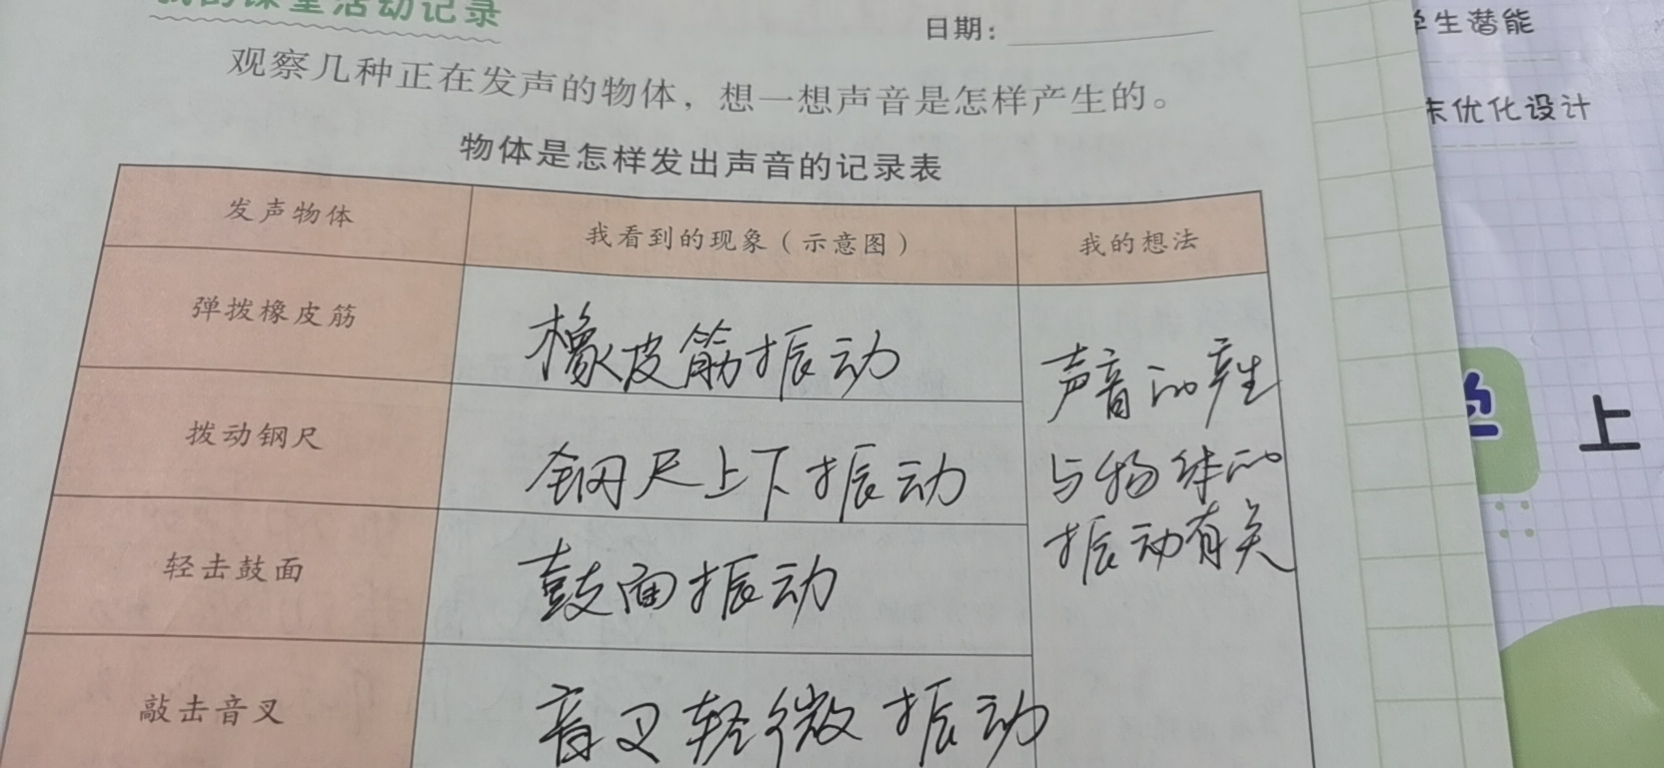 我的课堂活动记录
日期：
观察几种正在发声的物体，想一想声音是怎样产生的。
物体是怎样发出声音的记录表
发声物体
我看到的现象（示意图）
我的想法
弹拨橡皮筋
橡皮筋振动
拨动钢尺
钢尺上下振动
轻击鼓面
鼓面振动
敲击音叉
音叉轻微振动
声音的产生
与物体的
振动有关
学生潜能
末优化设计
上